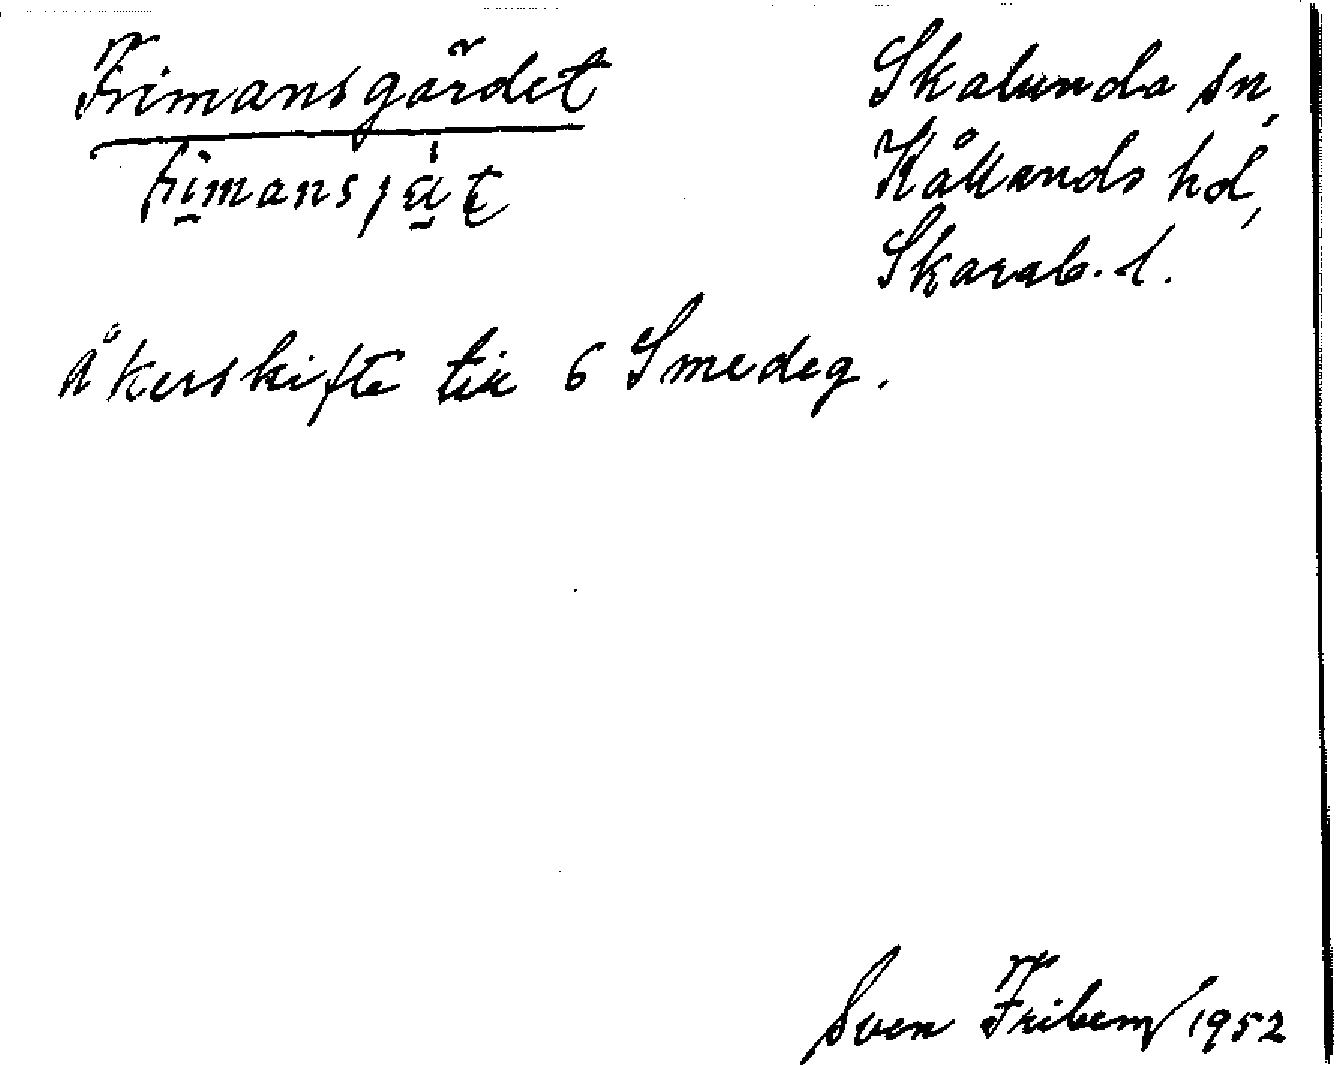 Frimansgärdet
Skalunda sn,
Kållands hd,
Skarab. l.
Åkerskifte till 6 Smedeg.
Sven Friberg 1952